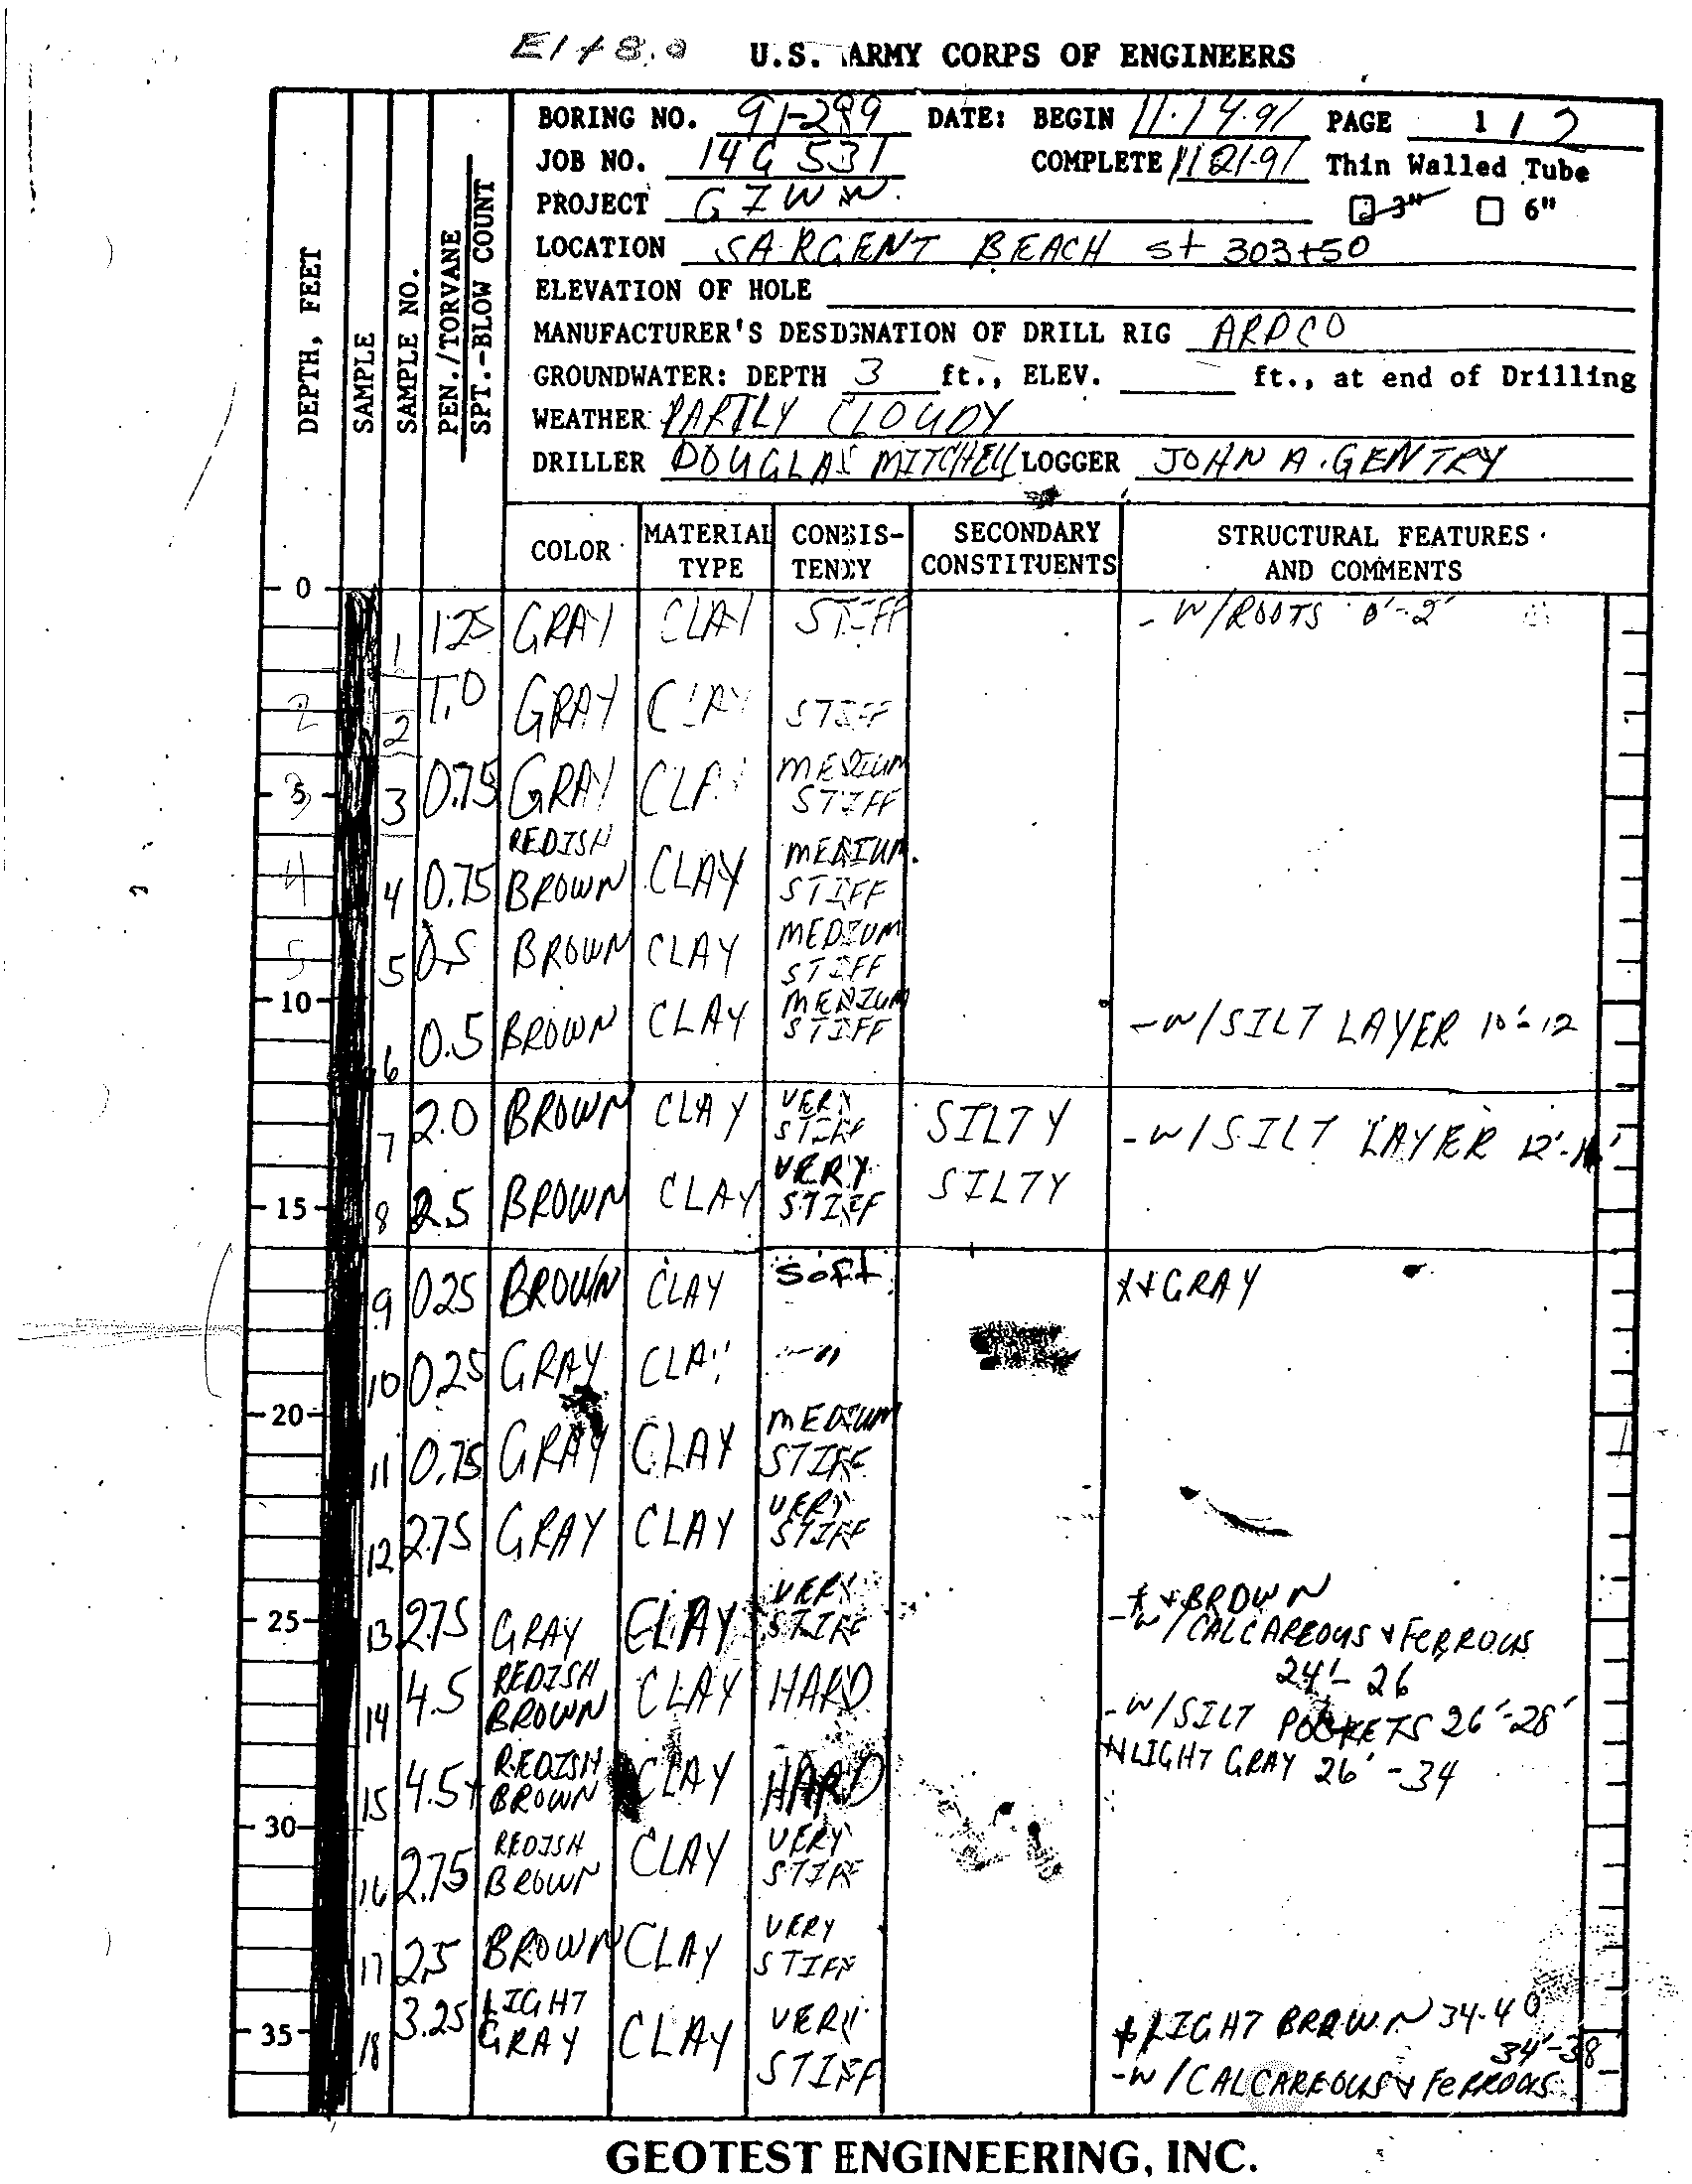 El + 8.0 U.S. ARMY CORPS OF ENGINEERS
BORING NO. 91-299 DATE: BEGIN 11.14.91 PAGE 1 / 2
JOB NO. 14G 531 COMPLETE 11 21-91 Thin Walled Tube
PROJECT GIWW. 3" 6"
LOCATION SARGENT BEACH st 303+50
ELEVATION OF HOLE
MANUFACTURER'S DESIGNATION OF DRILL RIG ARDCO
GROUNDWATER: DEPTH 3 ft., ELEV. ft., at end of Drilling
WEATHER PARTLY CLOUDY
DRILLER DOUGLAS MITCHELL LOGGER JOHN A. GENTRY
DEPTH, FEET
SAMPLE
SAMPLE NO.
PEN./TORVANE
SPT.-BLOW COUNT
COLOR MATERIAL TYPE CONSIS-TENCY SECONDARY CONSTITUENTS STRUCTURAL FEATURES AND COMMENTS
0
1 1.25 GRAY CLAY STIFF - W/ROOTS 0'-2'
2 2 1.0 GRAY CLAY STIFF
3 3 0.75 GRAY CLAY MEDIUM STIFF
4 4 0.75 REDISH BROWN CLAY MEDIUM STIFF
5 5 0.5 BROWN CLAY MEDIUM STIFF
10
6 0.5 BROWN CLAY MEDIUM STIFF -W/SILT LAYER 10'-12
7 2.0 BROWN CLAY VERY STIFF SILTY -W/SILT LAYER 12'-
15 8 2.5 BROWN CLAY VERY STIFF SILTY
9 025 BROWN CLAY Soft **GRAY
10 0.25 GRAY CLAY —"
20
11 0.75 GRAY CLAY MEDIUM STIFF
12 2.75 GRAY CLAY VERY STIFF
25 13 2.75 GRAY CLAY VERY STIFF * *BROWN
-W/CALCAREOUS & FERROUS
24'- 26
14 4.5 REDISH BROWN CLAY HARD -W/SILT POCKETS 26'-28'
**LIGHT GRAY 26' -34
15 4.5+ REDISH BROWN CLAY HARD
30
16 2.75 REDISH BROWN CLAY VERY STIFF
17 2.5 BROWN CLAY VERY STIFF
35 18 3.25 LIGHT GRAY CLAY VERY STIFF *LIGHT BROWN 34-40
34'-38
-W/CALCAREOUS & FERROUS
GEOTEST ENGINEERING, INC.